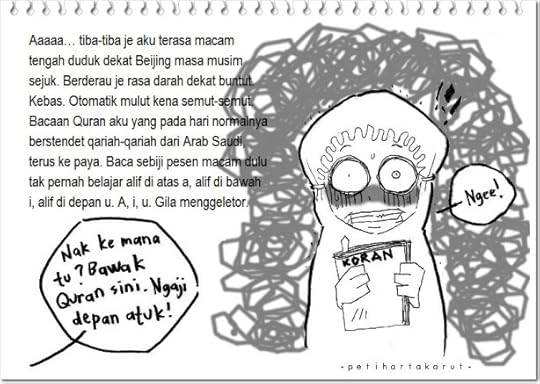 Aaaaa... tiba-tiba je aku terasa macam
tengah duduk dekat Beijing masa musim
sejuk. Berderau je rasa darah dekat buntut.
Kebas. Otomatik mulut kena semut-semut.
Bacaan Quran aku yang pada hari normalnya
berstendet qariah-qariah dari Arab Saudi,
terus ke paya. Baca sebiji pesen macam dulu
tak pernah belajar alif di atas a, alif di bawah
i, alif di depan u. A, i, u. Gila menggeletor.
Ngee!
Nak ke mana
tu? Bawak
Quran sini. Ngaji
depan atuk!
KORAN
-petihartakarut-